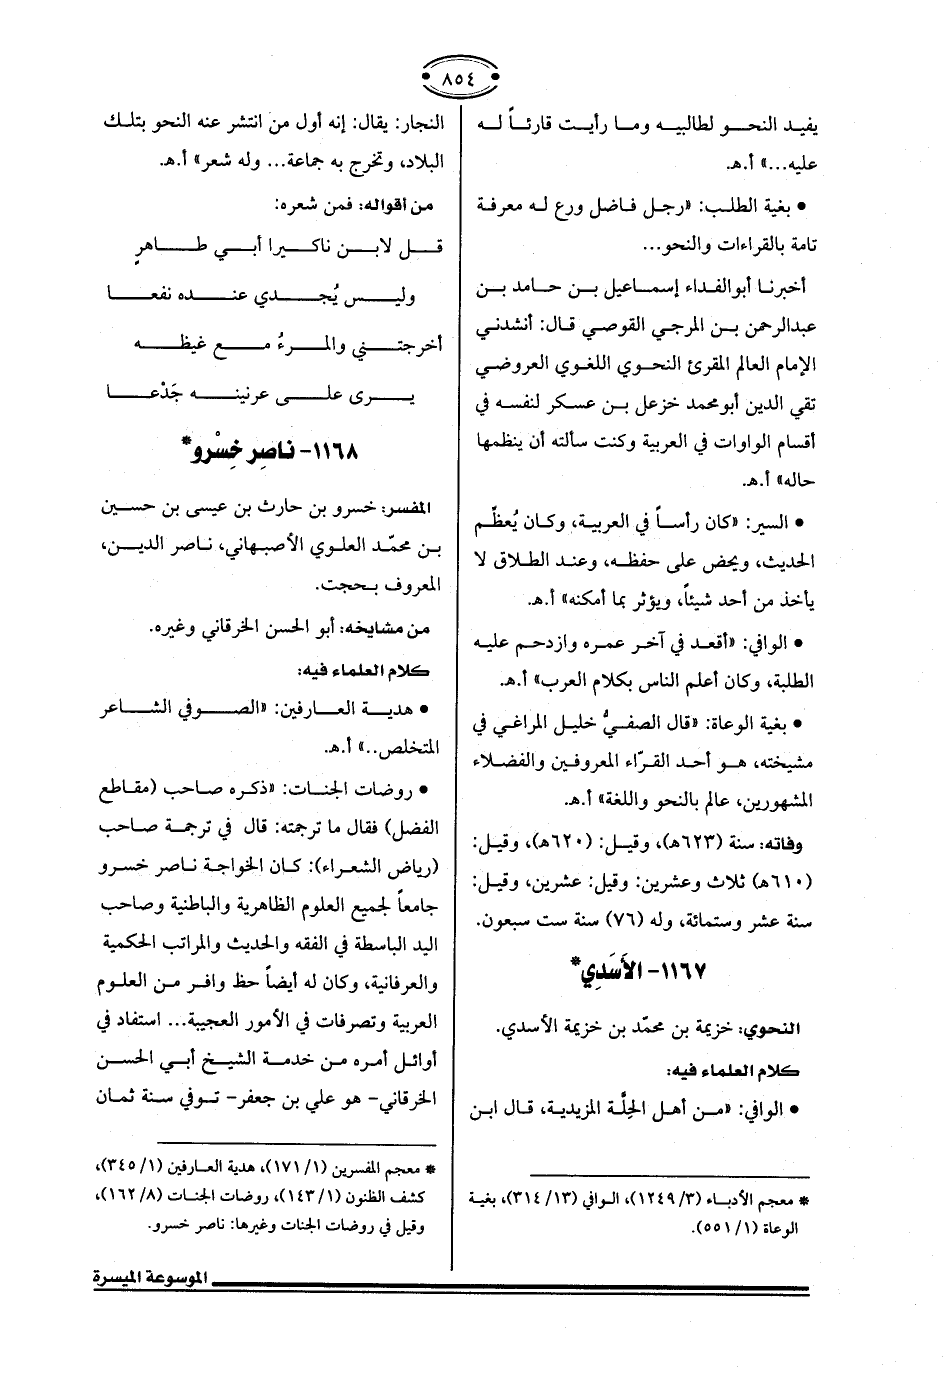 ٨٥٤
يفيد النحو لطالبيه وما رأيت قارئاً له
عليه...» أ.هـ.
• بغية الطلب: «رجل فاضل ورع له معرفة
تامة بالقراءات والنحو...
أخبرنا أبو الفداء إسماعيل بن حامد بن
عبدالرحمن بن المرجي القوصي قال: أنشدني
الإمام العالم المقرئ النحوي اللغوي العروضي
تقي الدين أبو محمد خزعل بن عسكر لنفسه في
أقسام الواوات في العربية وكنت سألته أن ينظمها
حاله» أ.هـ.
• السير: «كان رأساً في العربية، وكان يُعظّم
الحديث، ويحض على حفظه، وعند الطلاق لا
يأخذ من أحد شيئاً، ويؤثر بما أمكنه» أ.هـ.
• الوافي: «أقعد في آخر عمره وازدحم عليه
الطلبة، وكان أعلم الناس بكلام العرب» أ.هـ.
• بغية الوعاة: «قال الصفيُّ خليل المراغي في
مشيخته، هو أحد القرّاء المعروفين والفضلاء
المشهورين، عالم بالنحو واللغة» أ.هـ.
وفاته: سنة (٦٢٣هـ)، وقيل: (٦٢٠هـ)، وقيل:
(٦١٠هـ) ثلاث وعشرين: وقيل: عشرين، وقيل:
سنة عشر وستمائة، وله (٧٦) سنة ست سبعون.
١١٦٧- الأَسَدِي*
النحوي: خزيمة بن محمّد بن خزيمة الأسدي.
كلام العلماء فيه:
• الوافي: «من أهل الحِلَّة المزيدية، قال ابن
* معجم الأدباء (١٢٤٩/٣)، الوافي (٣١٤/١٣)، بغية
الوعاة (٥٥١/١).
النجار: يقال: إنه أول من انتشر عنه النحو بتلك
البلاد، وتخرج به جماعة... وله شعر» أ.هـ.
من أقواله: فمن شعره:
قل لابن ناكيرا أبي طاهرٍ
وليس يُجدي عنده نفعا
أخرجتني والمرءُ مع غيظه
يرى على عرنينه جَدْعا
١١٦٨- ناصِر خِسْرو*
المفسر: خسرو بن حارث بن عيسى بن حسين
بن محمّد العلوي الأصبهاني، ناصر الدين،
المعروف بحجت.
من مشايخه: أبو الحسن الخرقاني وغيره.
كلام العلماء فيه:
• هدية العارفين: «الصوفي الشاعر
المتخلص..» أ.هـ.
• روضات الجنات: «ذكره صاحب (مقاطع
الفضل) فقال ما ترجمته: قال في ترجمة صاحب
(رياض الشعراء): كان الخواجة ناصر خسرو
جامعاً لجميع العلوم الظاهرية والباطنية وصاحب
اليد الباسطة في الفقه والحديث والمراتب الحكمية
والعرفانية، وكان له أيضاً حظ وافر من العلوم
العربية وتصرفات في الأمور العجيبة... استفاد في
أوائل أمره من خدمة الشيخ أبي الحسن
الخرقاني- هو علي بن جعفر- توفي سنة ثمان
* معجم المفسرين (١٧١/١)، هدية العارفين (٣٤٥/١)،
كشف الظنون (١٤٣/١)، روضات الجنات (١٦٢/٨)،
وقيل في روضات الجنات وغيرها: ناصر خسرو.
الموسوعة الميسرة